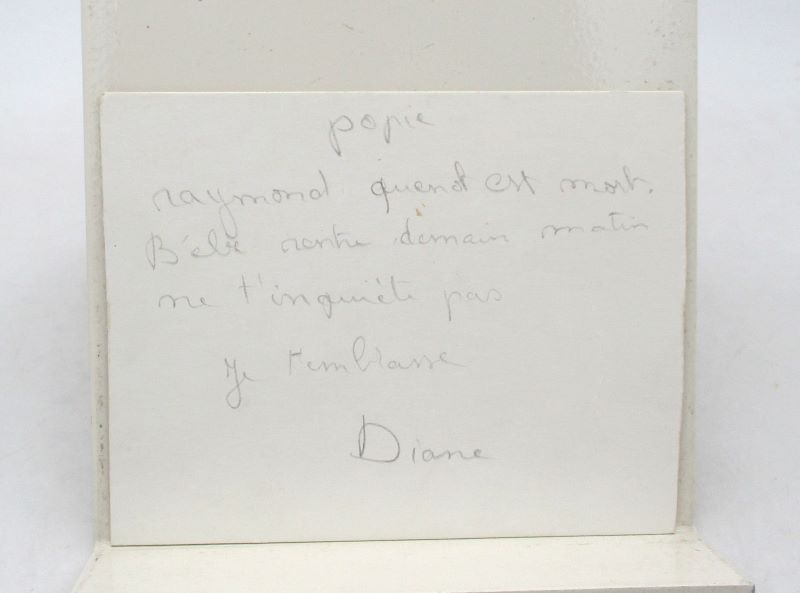 popie
raymond quenot est mort.
Bébé rentre demain matin
ne t'inquiéte pas
Je t'embrasse
Diane